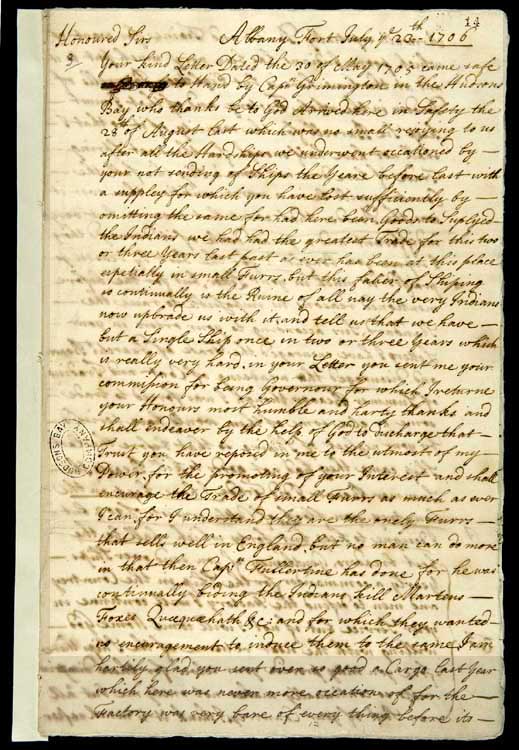 14
Honoured Sirs Albany Fort July ye 23th 1706
Your kind Letter Dated the 30 of May 1705 came safe
to Hand by Capn Grimington in the Hudsons
Bay who thanks be to God Arrived here in Safety the
28th of August last which was no small revying to us
after all the Hardships we underwent ocationed by
your not sending of Ships the Yeare before last with
a suppley for which you have lost sufficiently by
omitting the same for had here bean Goods to Suplyed
the Indians we had had the greatest Trade for this two
or three Years last past as ever has been at this place
espetially in small Furrs, but this failer of Shiping
is continually the Ruine of all nay the very Indians
now upbrade us with it and tell us that we have
but a Single Ship once in two or three Years which
is really very hard, in your Letter you sent me your
commission for being Governour for which I returne
your Honours most humble and harty thanks and
shall endeaver by the help of God to discharge that
Trust you have reposed in me to the utmost of my
Power, for the promoting of your Interest and shall
encurage the Trade of small Furrs as much as ever
I can, for I understand they are the onely Furrs
that sells well in England, but no man can do more
in that then Capn Fullertine has done for he was
continually biding the Indians kill Martens
Foxes Quequehath &c: and for which they wanted
no encuragement to induce them to the same I am
hartily glad you sent over so good a Cargo last Year
which here was never more ocation of for the
Factory was very bare of every thing before its
HUDSONS BAY COMPANY